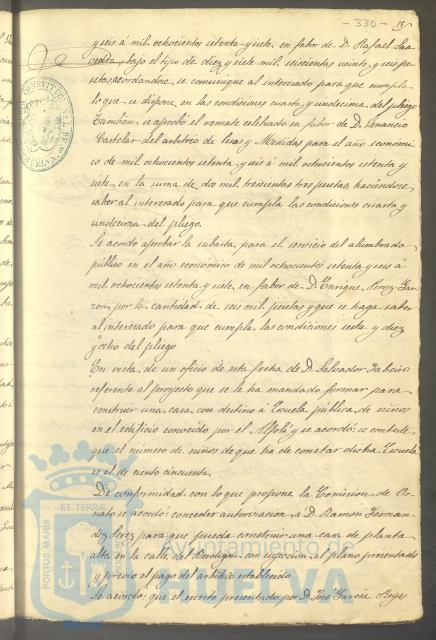 - 330 -
y seis á mil ochocientos setenta y siete, en favor de D. Rafael Saa
vedra, bajo el tipo de diez y siete mil seiscientas veinte y seis pe
setas acordandose se comunique al interesado para que cumpla
lo que se dispone, en las condiciones cuarta y undecima del pliego
Tambien se aprobó el remate celebrado en favor de D. Venancio
Castelar del arbitrio de Pesas y Medidas para el año economi
co de mil ochocientos setenta y seis á mil ochocientos setenta y
siete, en la suma de dos mil trescientas tres pesetas, haciendose
saber al interesado para que cumpla las condiciones cuarta y
undecima del pliego.
Se acordo aprobar la subasta para el servicio del alumbrado
público en el año economico de mil ochocientos setenta y seis á
mil ochocientos setenta y siete, en favor de D. Enrique Perez
por la cantidad de seis mil pesetas y que se haga saber
al interesado para que cumpla las condiciones seta y diez
y ocho del pliego
En vista de un oficio de esta fecha de D. Salvador
referente al proyecto que se le ha mandado formar para
construir una casa con destino á Escuela pública de niños
en el edificio conocido por el Alfolí y se acordó: se conteste
que el numero de niños de que ha de constar dicha Escuela
es el de ciento cincuenta.
De conformidad con lo que propone la Comision de Or
nato se acordó: conceder autorizacion á D. Ramon Fernan
dez Perez para que pueda construir una casa de planta
alta en la calle del con sujecion al plano presentado
y previo el pago del arbitrio establecido
Se acordó: que el escrito presentado por D. José Garcia Reyes
CONSTITUC
HUELVA
PORTUS MARIS
ET TERRÆ
Ayuntamiento de
HUELVA